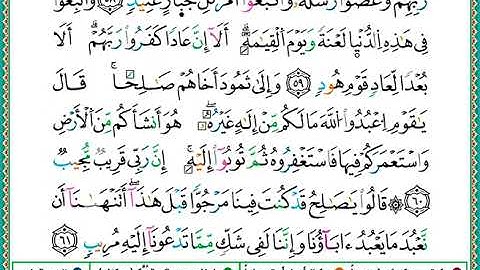 رَبِّهِمْ وَعَصَوْا۟ رُسُلَهُۥ وَٱتَّبَعُوٓا۟ أَمْرَ كُلِّ جَبَّارٍ عَنِيدٍ ٥٩ وَأُتْبِعُوا۟
فِى هَٰذِهِ ٱلدُّنْيَا لَعْنَةً وَيَوْمَ ٱلْقِيَٰمَةِ ۗ أَلَآ إِنَّ عَادًا كَفَرُوا۟ رَبَّهُمْ ۗ أَلَا
بُعْدًا لِّعَادٍ قَوْمِ هُودٍ ٥٩ وَإِلَىٰ ثَمُودَ أَخَاهُمْ صَٰلِحًا ۚ قَالَ
يَٰقَوْمِ ٱعْبُدُوا۟ ٱللَّهَ مَا لَكُم مِّنْ إِلَٰهٍ غَيْرُهُۥ ۖ هُوَ أَنشَأَكُم مِّنَ ٱلْأَرْضِ
وَٱسْتَعْمَرَكُمْ فِيهَا فَٱسْتَغْفِرُوهُ ثُمَّ تُوبُوٓا۟ إِلَيْهِ ۚ إِنَّ رَبِّى قَرِيبٌ مُّجِيبٌ
٦٠ قَالُوا۟ يَٰصَٰلِحُ قَدْ كُنتَ فِينَا مَرْجُوًّا قَبْلَ هَٰذَآ ۖ أَتَنْهَىٰنَآ أَن
نَّعْبُدَ مَا يَعْبُدُ ءَابَآؤُنَا وَإِنَّنَا لَفِى شَكٍّ مِّمَّا تَدْعُونَآ إِلَيْهِ مُرِيبٍ ٦١